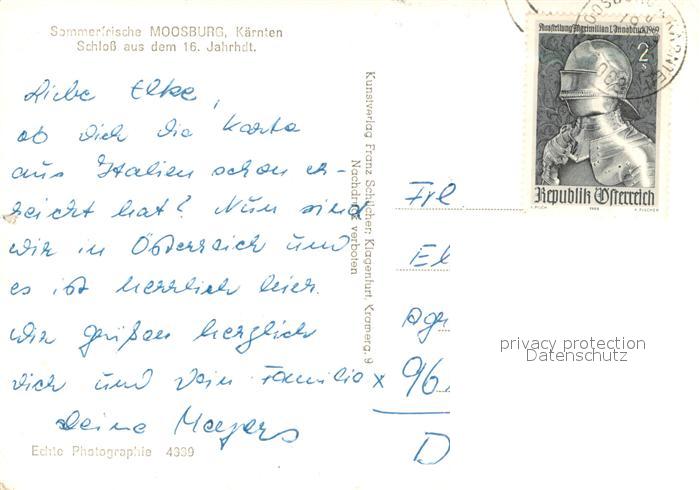 Sommerfrische MOOSBURG, Kärnten
Schloß aus dem 16. Jahrhdt.
Liebe Elke,
ob dich die Karte
aus Italien schon er-
reicht hat? Nun sind
wir in Österreich und
es ist herrlich hier.
Wir grüßen herzlich
dich und Dein Familie
Deine Meyers
Echte Photographie 4339
Kunstverlag Franz Schilcher; Klagenfurt, Kramerg. 9
Nachdruck verboten
Ausstellung Maximilian I. Innsbruck 1969
2
S
Republik Österreich
Frl
El
x 96
D
privacy protection
Datenschutz